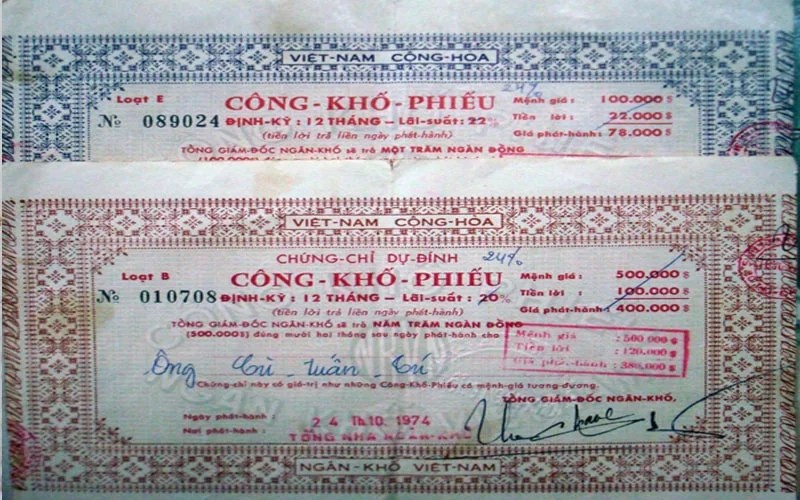 VIỆT-NAM CỘNG-HÒA
24%
Loạt E
CÔNG-KHỐ-PHIẾU
Mệnh giá : 100.000 $
№ 089024 ĐỊNH-KỲ : 12 THÁNG – Lãi-suất : 22%
Tiền lời : 22.000 $
(tiền lời trả liền ngày phát-hành)
Giá phát-hành : 78.000 $
TỔNG GIÁM-ĐỐC NGÂN-KHỐ sẽ trả MỘT TRĂM NGÀN ĐỒNG
VIỆT-NAM CỘNG-HÒA
CHỨNG-CHỈ DỰ-ĐÍNH
24%
Loạt B
CÔNG-KHỐ-PHIẾU
Mệnh giá : 500.000 $
№ 010708 ĐỊNH-KỲ : 12 THÁNG – Lãi-suất : 20%
Tiền lời : 100.000 $
(tiền lời trả liền ngày phát-hành)
Giá phát-hành : 400.000 $
TỔNG GIÁM-ĐỐC NGÂN-KHỐ sẽ trả NĂM TRĂM NGÀN ĐỒNG
(500.000$) đúng mười hai tháng sau ngày phát-hành cho
Mệnh giá : 500.000 $
Tiền lời : 120.000 $
Giá phát-hành : 380.000 $
Ông Cù Tuấn
Chứng-chỉ này có giá-trị như những Công-Khố-Phiếu có mệnh-giá tương-đương.
TỔNG GIÁM-ĐỐC NGÂN-KHỐ,
Ngày phát-hành : 24 Th.10.1974
Nơi phát-hành : TỔNG NHA NGÂN-KHỐ
NGÂN-KHỐ VIỆT-NAM